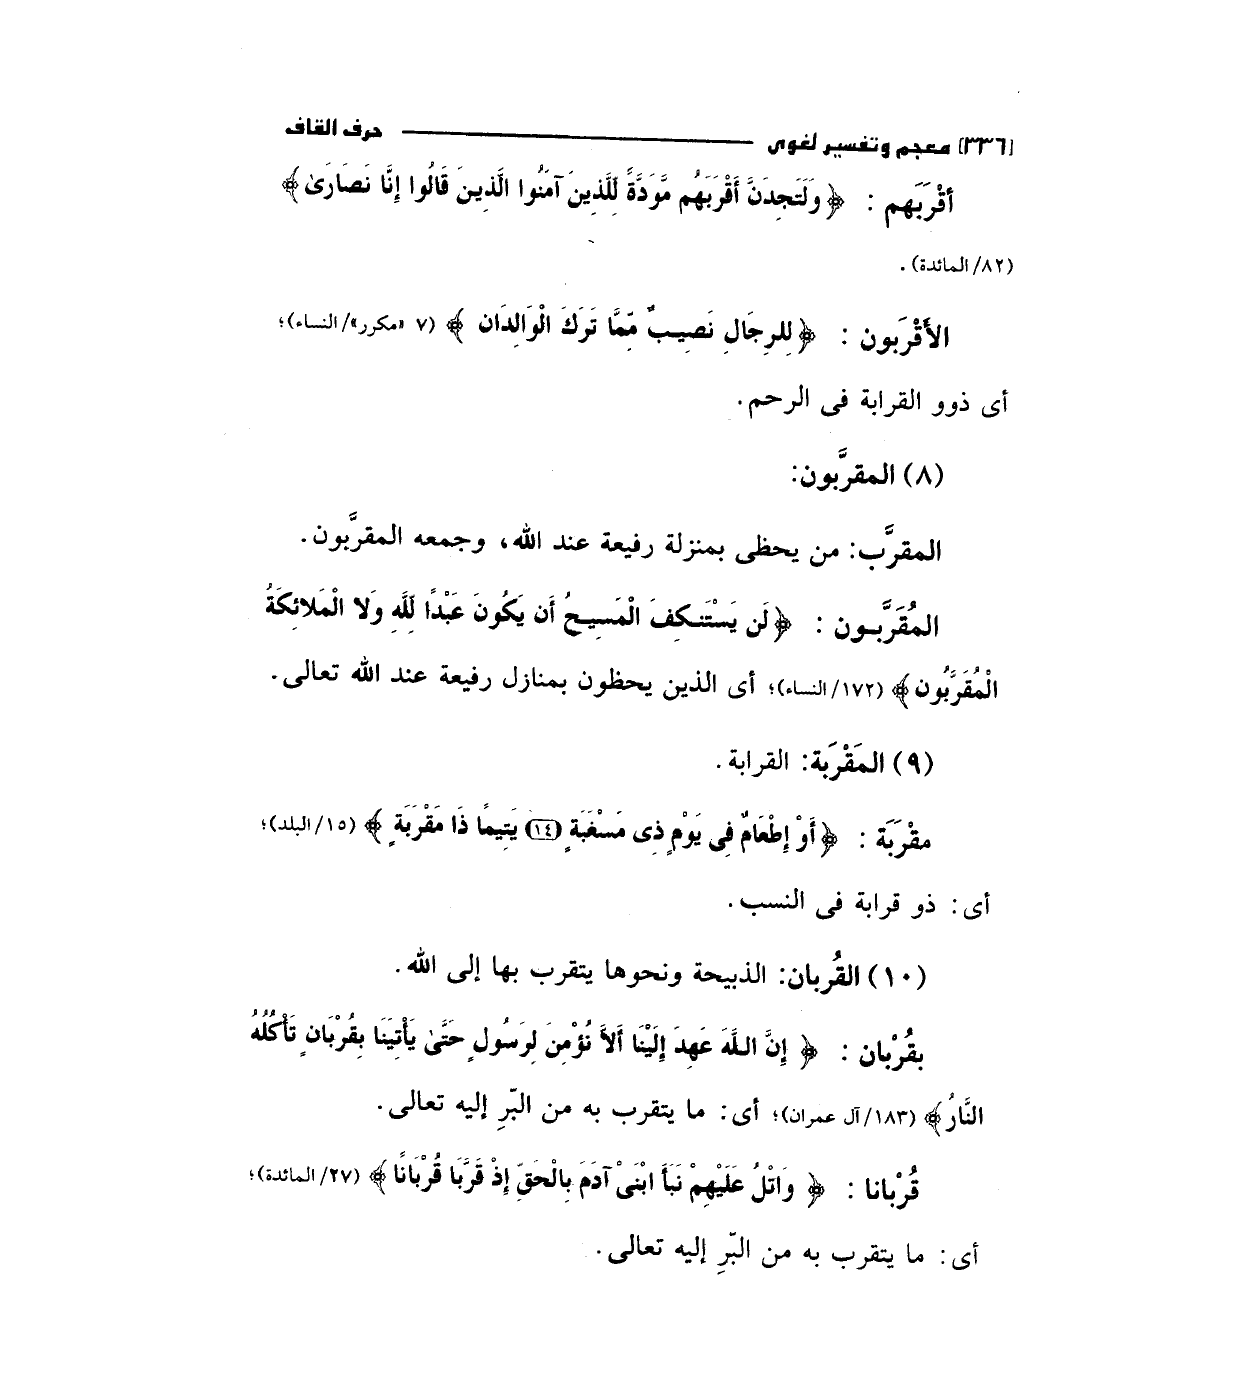 [٣٣٦] معجم وتفسير لغوى حرف القاف
أقْرَبَهم : ﴿ وَلَتَجِدَنَّ أَقْرَبَهُم مَّوَدَّةً لِّلَّذِينَ آمَنُوا الَّذِينَ قَالُوا إِنَّا نَصَارَىٰ﴾
(٨٢/ المائدة) .
الأَقْرَبون : ﴿لِلرِجَالِ نَصِيبٌ مِّمَّا تَرَكَ الْوَالِدَان ﴾ (٧ «مكرر»/ النساء)؛
أى ذوو القرابة فى الرحم.
(٨) المقرَّبون:
المقرَّب: من يحظى بمنزلة رفيعة عند الله، وجمعه المقرَّبون.
المُقَرَّبون : ﴿لَن يَسْتَنكِفَ الْمَسِيحُ أَن يَكُونَ عَبْدًا لِّلَّهِ وَلا الْمَلائِكَةُ
الْمُقَرَّبُون﴾ (١٧٢/ النساء)؛ أى الذين يحظون بمنازل رفيعة عند الله تعالى.
(٩) المَقْرَبَة: القرابة.
مقْرَبَة : ﴿أَوْ إِطْعَامٌ فِي يَوْمٍ ذِى مَسْغَبَةٍ (١٤) يَتِيمًا ذَا مَقْرَبَةٍ ﴾ (١٥/ البلد)؛
أى: ذو قرابة فى النسب.
(١٠) القُربان: الذبيحة ونحوها يتقرب بها إلى الله.
بقُرْبان : ﴿ إِنَّ اللَّهَ عَهِدَ إِلَيْنَا أَلاَّ نُؤْمِنَ لِرَسُولٍ حَتَّىٰ يَأْتِيَنَا بِقُرْبَانٍ تَأْكُلُهُ
النَّارُ﴾ (١٨٣/ آل عمران)؛ أى: ما يتقرب به من البّرِ إليه تعالى.
قُرْبانا : ﴿ وَاتْلُ عَلَيْهِمْ نَبَأَ ابْنَىْ آدَمَ بِالْحَقِّ إِذْ قَرَّبَا قُرْبَانًا ﴾ (٢٧/ المائدة)؛
أى: ما يتقرب به من البّرِ إليه تعالى.